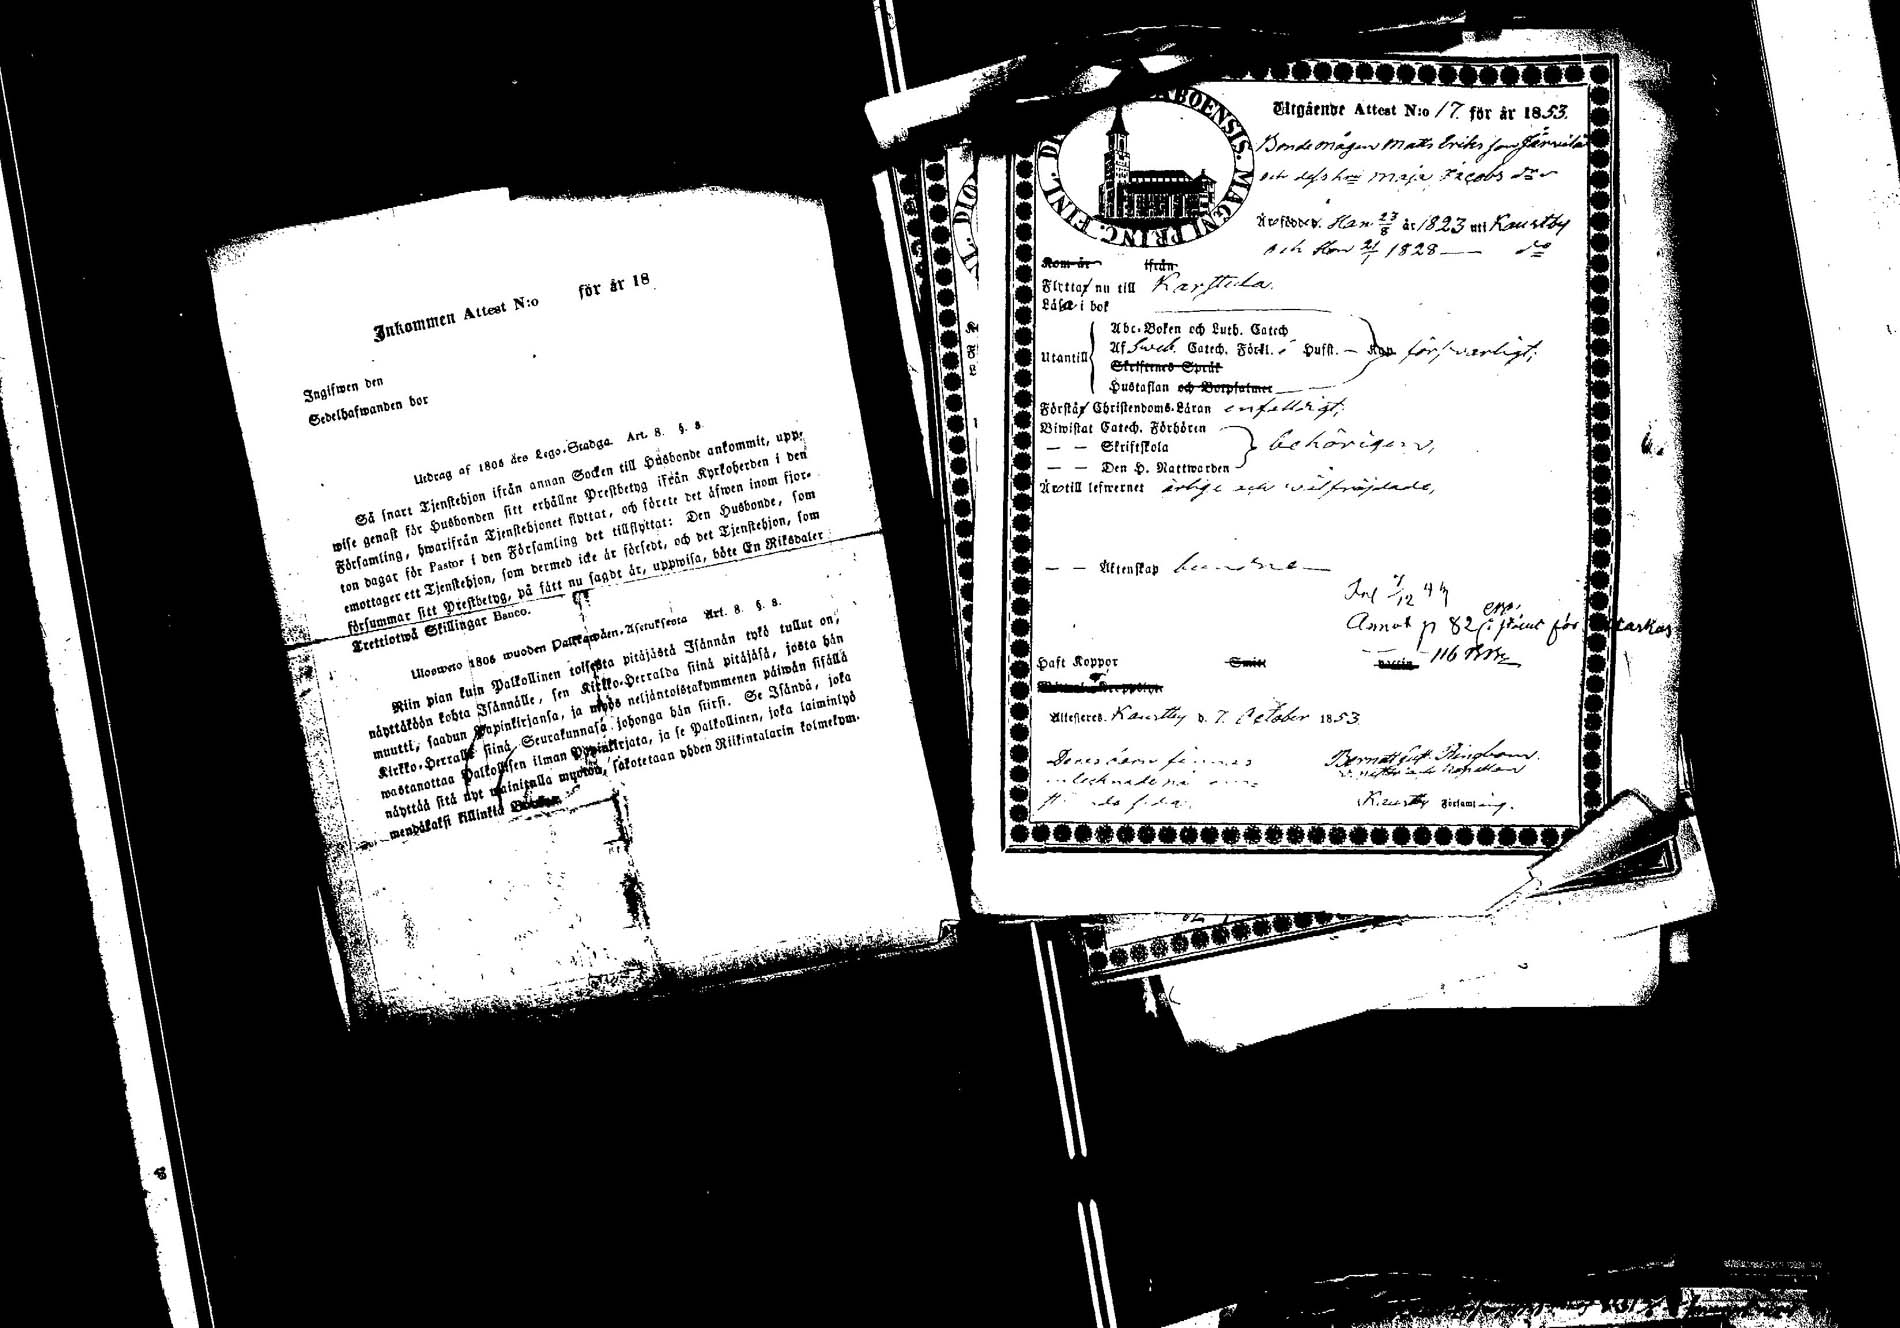 Inkommen Attest N:o för år 18
Ingifwen den
Sedelhafwanden bor
Utdrag af 1805 års Lego-Stadga Art. 8. §. 8.
Så snart Tjenstehjon ifrån annan Socken till Husbonde ankommit, upp-
wise genast för Husbonden sitt erhållne Prestbetyg ifrån Kyrkoherden i den
Församling, hwarifrån Tjenstehjonet flyttat, och förete det äfwen inom fjor-
ton dagar för Pastor i den Församling det tillflyttat: Den Husbonde, som
emottager ett Tjenstehjon, som dermed icke är försedt, och det Tjenstehjon, som
försummar sitt Prestbetyg, på sätt nu sagdt är, uppwisa, böte En Riksdaler
Trettiotwå Skillingar Banco.
Ulosweto 1805 wuoden Palkawäen-Asetuksesta Art. 8. §. 8.
Niin pian kuin Palkollinen toisesta pitäjästä Isännän tykö tullut on,
näyttäköön kohta Isännälle, sen Kirkko-Herralda siinä pitäjäsä, josta hän
muutti, saadun Papinkirjansa, ja myös neljäntoistakymmenen päiwän sisällä
Kirkko-Herralle siinä Seurakunnasa johonga hän siirsi. Se Isändä, joka
wastanottaa Palkollisen ilman Papinkirjata, ja se Palkollinen, joka laiminlyö
näyttää sitä nyt mainitulla muotoa, sakotetaan yhden Riikintalarin kolmekym-
mendäkaksi killinkiä Banko.
DIOE ABOENSIS. MAGNI PRINC. FINL.
Utgående Attest N:o 17. för år 1853.
Bondemågen Mats Eriksson Järvelä
och dess hu Maja Jacobs dr
Äro födde, Han 23/8 år 1823 uti Kaustby
och Hon 21/1 1828 — do
Kom år ifrån
Flytta nu till Karstula.
Läsa i bok
Utantill
Abc-Boken och Luth. Catech
Af Sweb. Catech. Förkl. i Husft. — försvarligt;
Skriftenes Språk
Hustaflan och Botpsalmer
Förstå Christendoms-Läran enfaldigt;
Biwistat Catech. Förhören
— — Skriftskola behörigen,
— — Den H. Nattwarden
Äro till lefwernet ärlige och välfräjdade,
— — Äktenskap bundne —
Annot p 82
116
Haft Koppor
Attesteres. Kaustby d. 7. October 1853
Kaustby Församling.